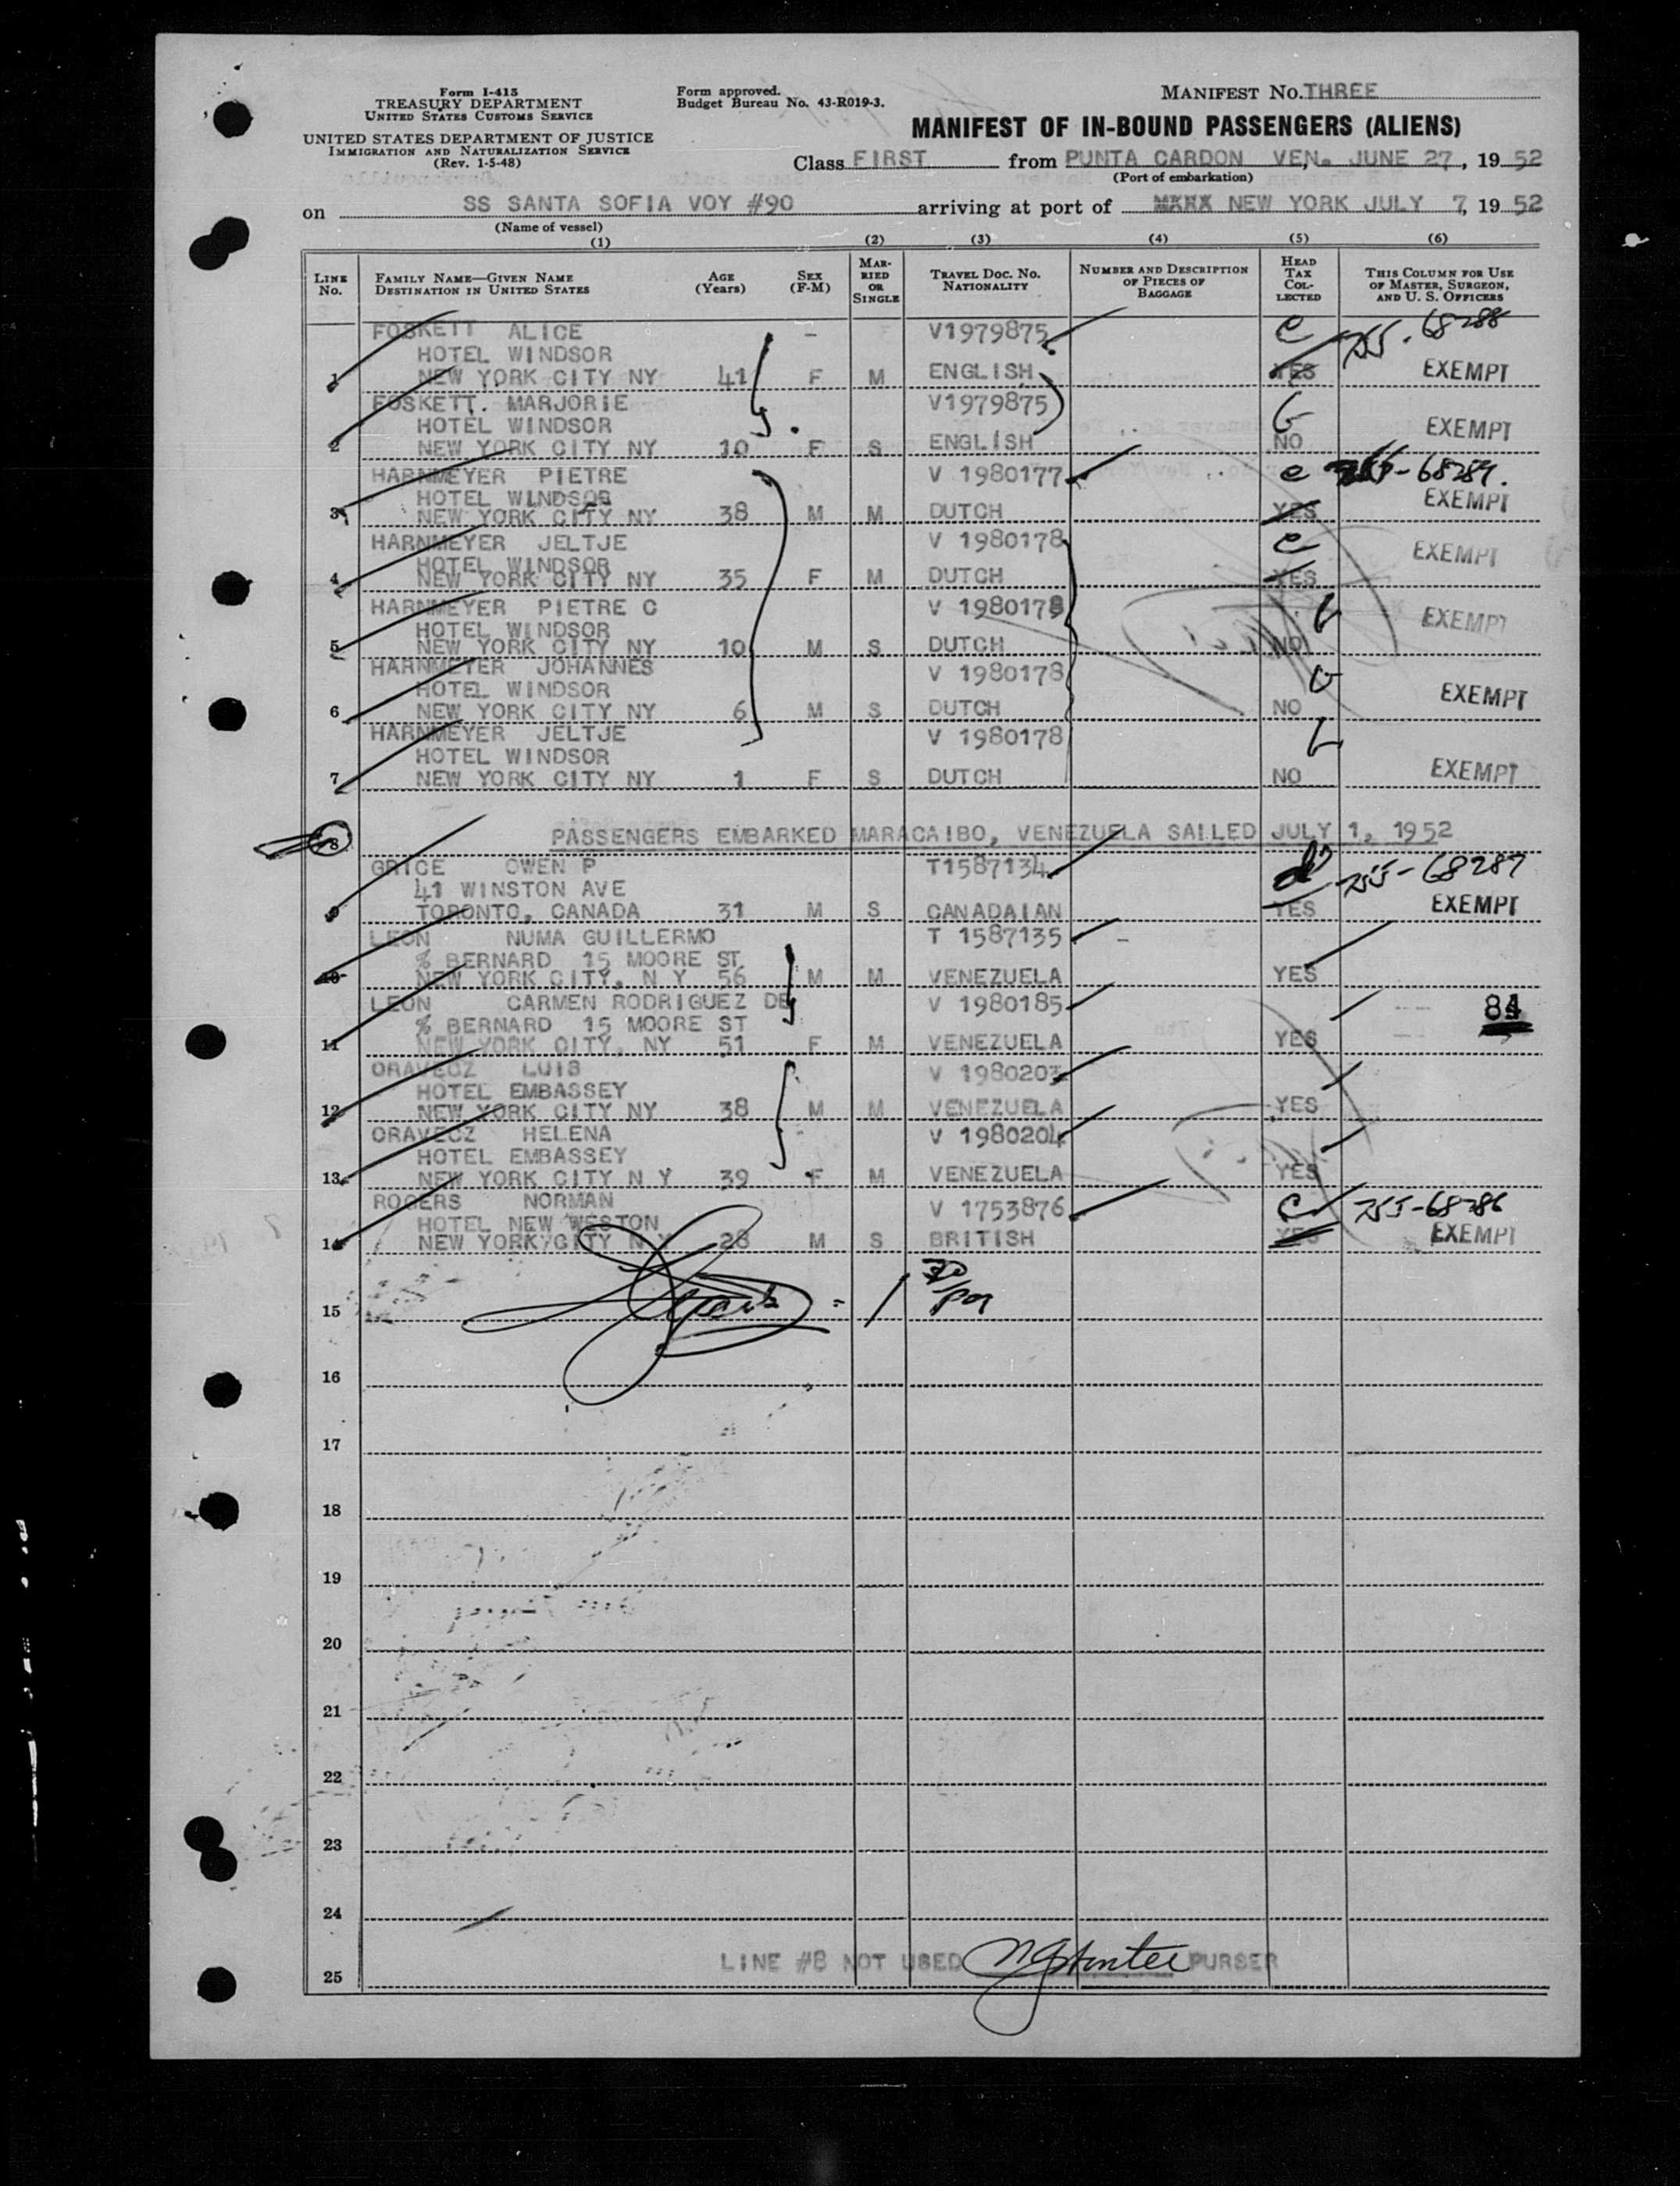 Form I-415
TREASURY DEPARTMENT
UNITED STATES CUSTOMS SERVICE
UNITED STATES DEPARTMENT OF JUSTICE
IMMIGRATION AND NATURALIZATION SERVICE
(Rev. 1-5-48)
Form approved.
Budget Bureau No. 43-R019-3.
MANIFEST No. THREE
MANIFEST OF IN-BOUND PASSENGERS (ALIENS)
Class FIRST from PUNTA CARDON VEN. JUNE 27, 19 52
(Port of embarkation)
on SS SANTA SOFIA VOY #90 arriving at port of NEW YORK JULY 7, 19 52
(Name of vessel)
(1) (2) (3) (4) (5) (6)
LINE No. FAMILY NAME—GIVEN NAME DESTINATION IN UNITED STATES AGE (Years) SEX (F-M) MARRIED OR SINGLE TRAVEL DOC. NO. NATIONALITY NUMBER AND DESCRIPTION OF PIECES OF BAGGAGE HEAD TAX COLLECTED THIS COLUMN FOR USE OF MASTER, SURGEON, AND U. S. OFFICERS
FOSKETT ALICE - V1979875 C 755-68288
HOTEL WINDSOR
1 NEW YORK CITY NY 41 F M ENGLISH YES EXEMPT
FOSKETT. MARJORIE V1979875
HOTEL WINDSOR EXEMPT
2 NEW YORK CITY NY 10 F S ENGLISH NO
HARNMEYER PIETRE V 1980177 e 755-68289.
HOTEL WINDSOR EXEMPT
3 NEW YORK CITY NY 38 M M DUTCH YES
HARNMEYER JELTJE V 1980178 e EXEMPT
HOTEL WINDSOR
4 NEW YORK CITY NY 35 F M DUTCH YES
HARNMEYER PIETRE C V 1980178
HOTEL WINDSOR EXEMPT
5 NEW YORK CITY NY 10 M S DUTCH NO
HARNMEYER JOHANNES V 1980178
HOTEL WINDSOR EXEMPT
6 NEW YORK CITY NY 6 M S DUTCH NO
HARNMEYER JELTJE V 1980178
HOTEL WINDSOR
7 NEW YORK CITY NY 1 F S DUTCH NO EXEMPT
8 PASSENGERS EMBARKED MARACAIBO, VENEZUELA SAILED JULY 1, 1952
GRICE OWEN P T1587134 d 755-68287
41 WINSTON AVE
9 TORONTO, CANADA 31 M S CANADAIAN YES EXEMPT
LEON NUMA GUILLERMO T 1587135
% BERNARD 15 MOORE ST.
10 NEW YORK CITY, N Y 56 M M VENEZUELA YES
LEON CARMEN RODRIGUEZ DE V 1980185 84
% BERNARD 15 MOORE ST
11 NEW YORK CITY, NY 51 F M VENEZUELA YES
ORAVECZ LUIS V 1980203
HOTEL EMBASSEY
12 NEW YORK CITY NY 38 M M VENEZUELA YES
ORAVECZ HELENA V 1980204
HOTEL EMBASSEY
13 NEW YORK CITY N Y 39 F M VENEZUELA YES
ROGERS NORMAN V 1753876 C 755-68286
HOTEL NEW WESTON
14 NEW YORK CITY N Y 28 M S BRITISH YES EXEMPT
15
16
17
18
19
20
21
22
23
24
LINE #8 NOT USED PURSER
25